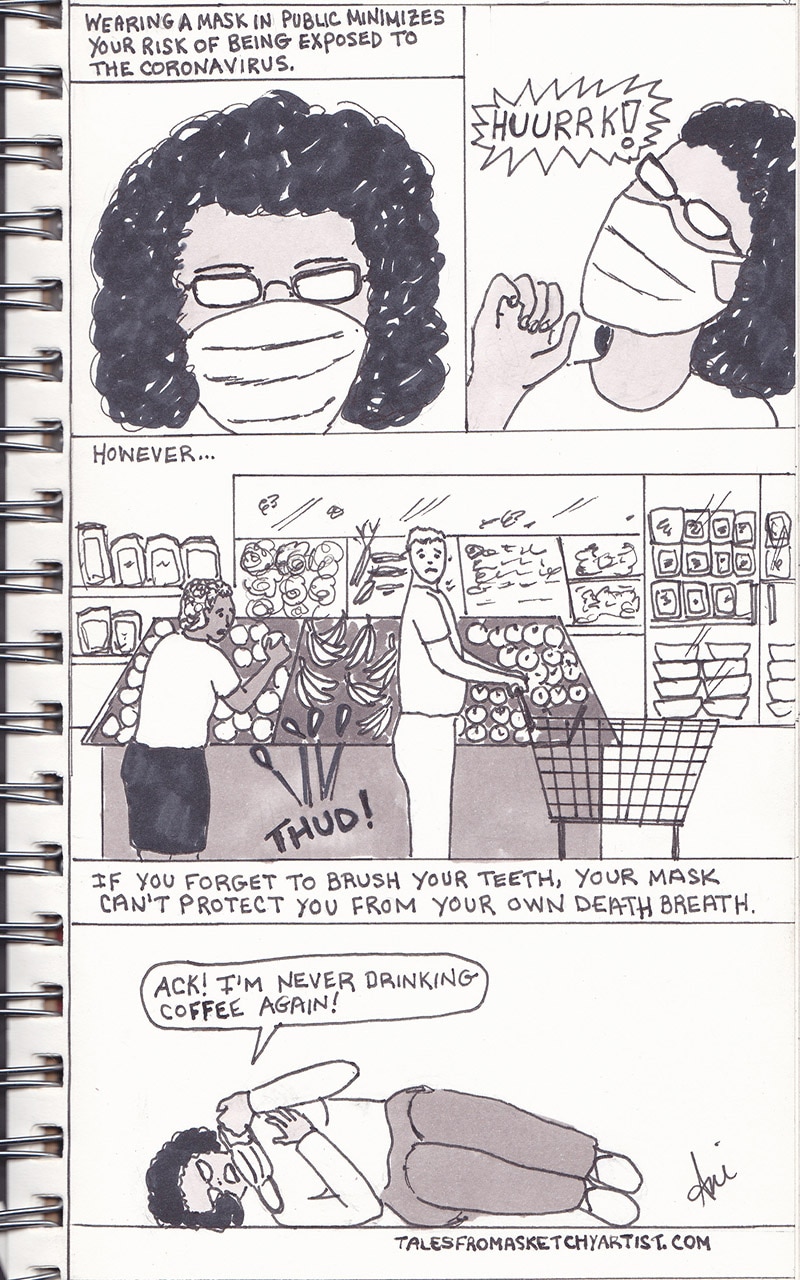 WEARING A MASK IN PUBLIC MINIMIZES
YOUR RISK OF BEING EXPOSED TO
THE CORONAVIRUS.
HUURRK!
HOWEVER...
THUD!
IF YOU FORGET TO BRUSH YOUR TEETH, YOUR MASK
CAN'T PROTECT YOU FROM YOUR OWN DEATH BREATH.
ACK! I'M NEVER DRINKING
COFFEE AGAIN!
TALESFROMASKETCHYARTIST.COM